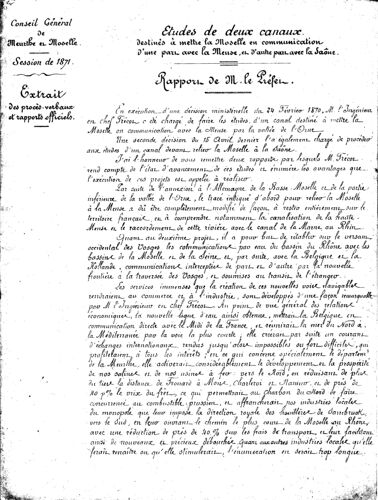 Conseil Général
de
Meurthe et Moselle.
Session de 1871.
Extrait
des procès-verbaux
et rapports officiels.
Etudes de deux canaux
destinés à mettre la Moselle en communication
d'une part avec la Meuse, et d'autre part avec la Saône.
Rapport de M. le Préfet.
En exécution d'une décision ministérielle du 24 Février 1870, M. l'Ingénieur
en chef Frécot a été chargé de faire les études d'un canal destiné à mettre la
Moselle en communication avec la Meuse par la vallée de l'Orne.
Une seconde décision du 15 Avril dernier l'a également chargé de procéder
aux études d'un canal devant relier la Moselle à la Saône.
J'ai l'honneur de vous remettre deux rapports par lesquels M. Frécot
rend compte de l'état d'avancement de ces études et énumère les avantages que
l'exécution de ces projets est appelée à réaliser.
Par suite de l'annexion à l'Allemagne de la Basse Moselle et de la partie
inférieure de la vallée de l'Orne, le tracé indiqué d'abord pour relier la Moselle
à la Meuse a dû être complètement modifié de façon à rester entièrement sur le
territoire français et à comprendre notamment la canalisation de la haute
Meuse et le raccordement de cette rivière avec le canal de la Marne au Rhin.
Quant au deuxième projet, il a pour but de rétablir sur le versant
occidental des Vosges les communications par eau du bassin du Rhône avec les
bassins de la Moselle et de la Seine et, par suite, avec la Belgique et la
Hollande, communications interceptées de part et d'autre par la nouvelle
frontière à la traversée des Vosges, et soumises au transit de l'étranger.
Les services immenses que la création de ces nouvelles voies navigables
rendraient au commerce et à l'industrie, sont développés d'une façon remarquable
par M. l'Ingénieur en chef Frécot. Au point de vue général des relations
économiques, la nouvelle ligne d'eau ainsi obtenue, mettrait la Belgique en
communication directe avec le Midi de la France, et réunirait la mer du Nord à
la Méditerranée par la voie la plus courte; elle créerait par suite un courant
d'échanges internationaux rendus jusqu'alors impossibles ou fort difficiles, qui
profiteraient à tous les intérêts; en ce qui concerne spécialement le département
de la Meurthe, elle aiderait considérablement au développement et à la prospérité
de nos salines et de nos usines à fer vers le Nord, en réduisant de plus
du tiers la distance de Frouard à Mons, Charleroi et Namur et de près de
40 p% le prix du fret, ce qui permettrait au charbon du Nord de faire
concurrence au combustible prussien et affranchirait nos industries locales
du monopole que leur impose la direction royale des houillères de Sarrebruck;
vers le Sud, en leur ouvrant le chemin le plus court de la Moselle au Rhône,
avec une réduction de près de 40 % sur les frais de transport, et leur faciliterait
ainsi de nouveaux et précieux débouchés. Quant aux autres industries locales qu'elle
ferait renaître ou qu'elle stimulerait, l'énumération en serait trop longue